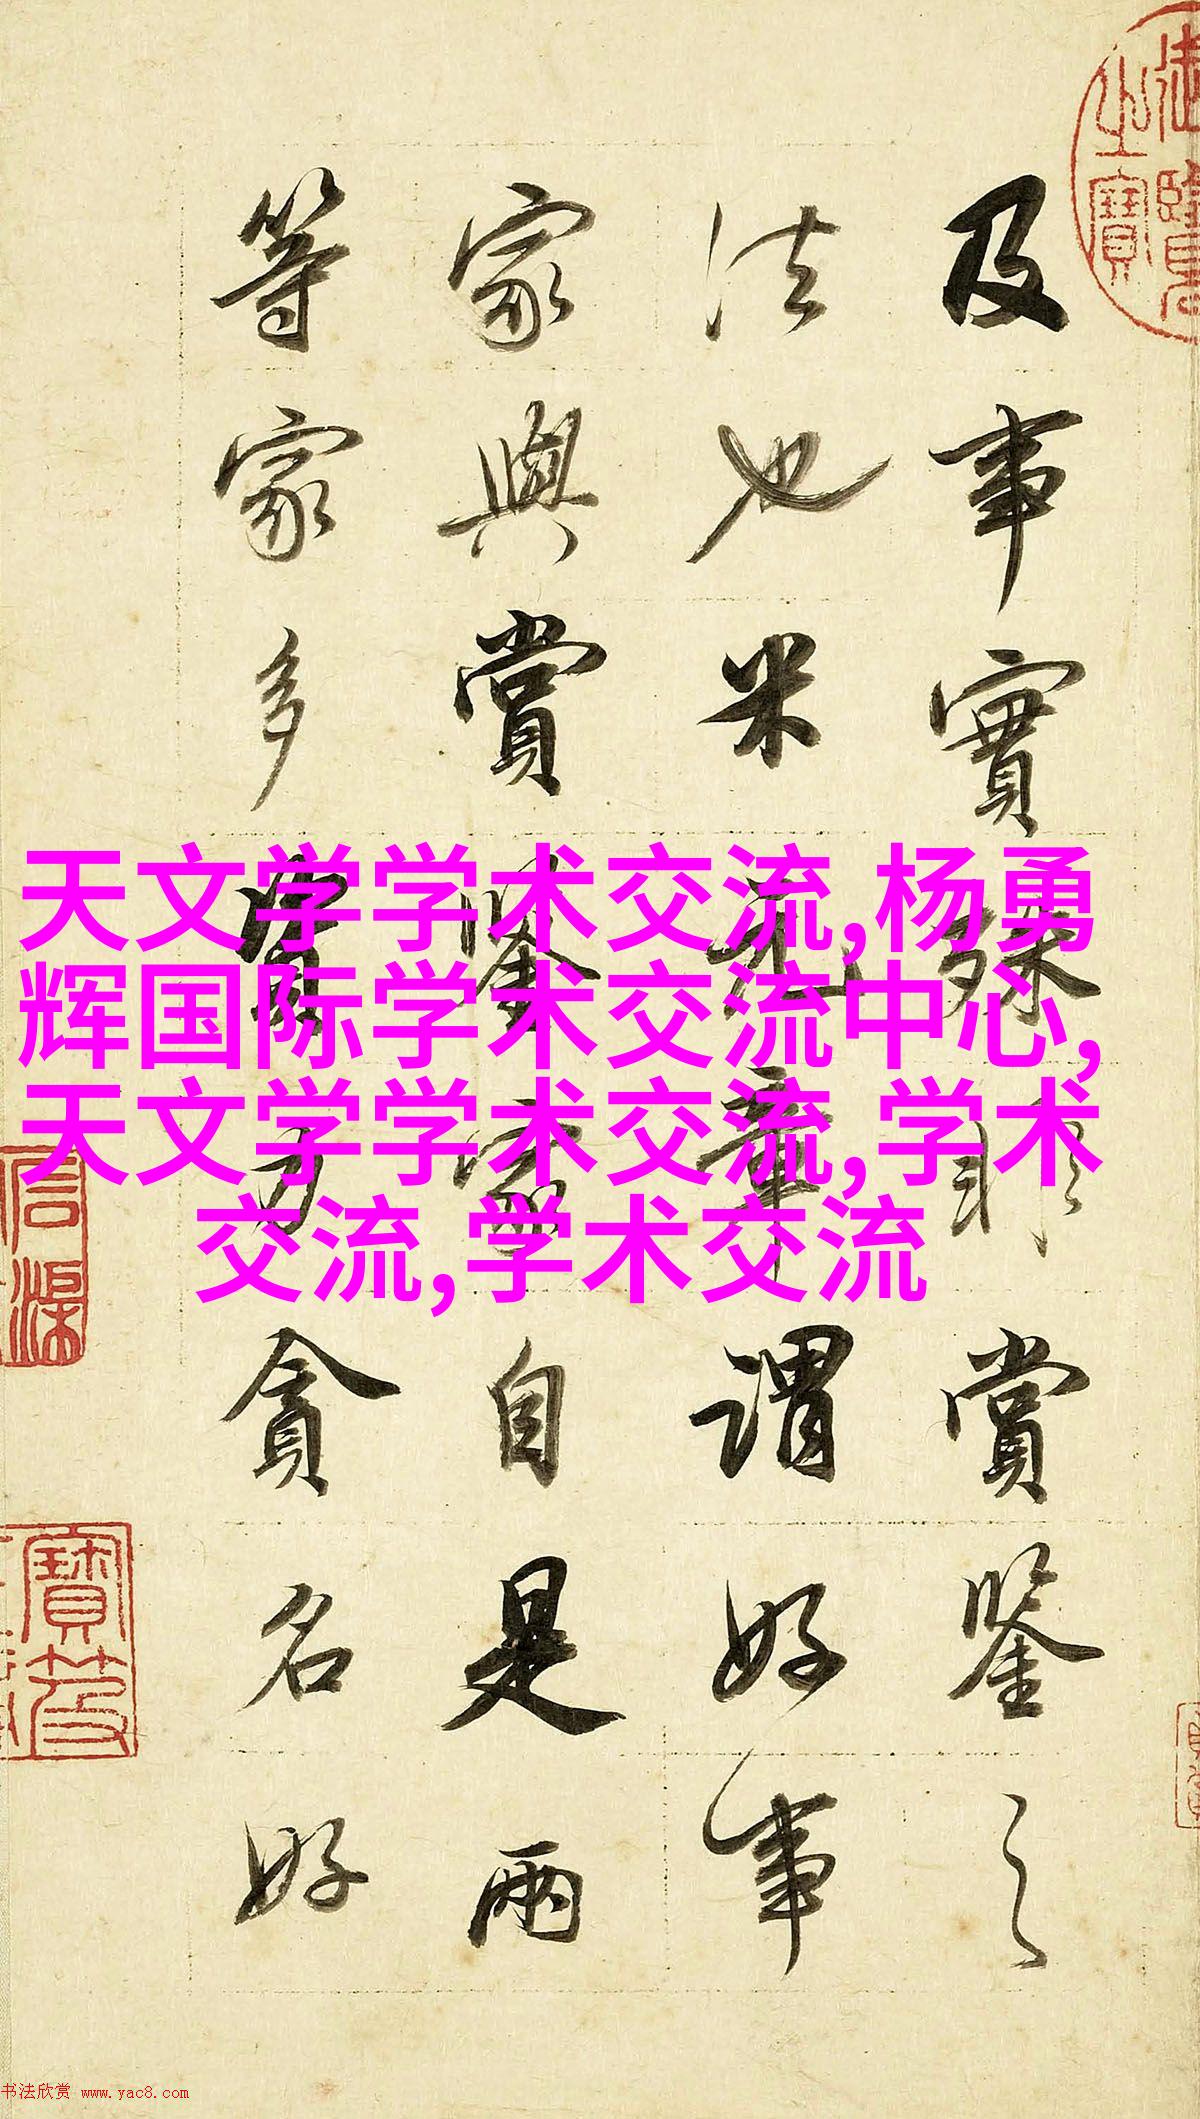 及事實殊非賞鑒之
法也米元章謂好事
家與賞鑒家自是兩
等家多資力貪名好
天文学学术交流,杨勇
辉国际学术交流中心,
天文学学术交流,学术
交流,学术交流
书法欣赏 www.yac8.com